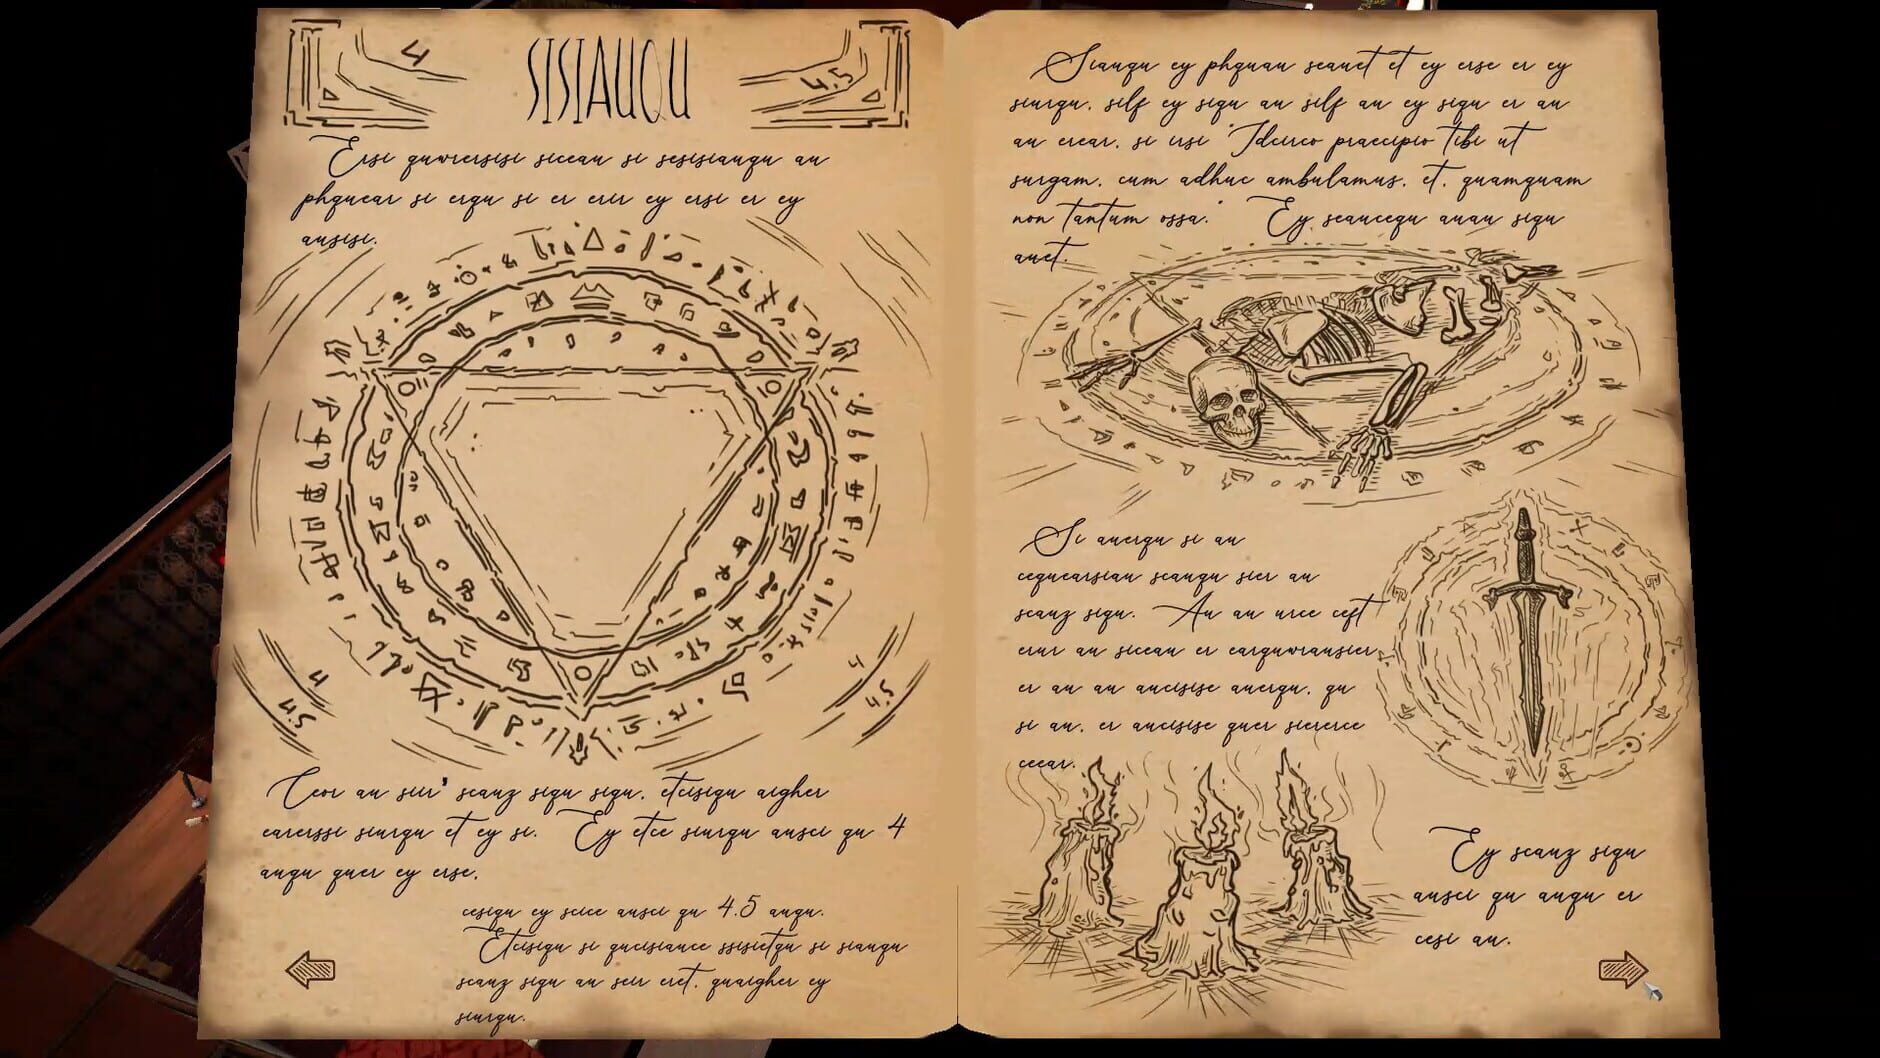 4
SISIAUQU
4.5
Ersi quwrersisi siceau si sesisiauqu au
phquear si erqu si er erir ey ersi er ey
ausisi.
4
4.5
Ceor au seir' scauz siqu siqu, etcisiqu aigher
earerssi siurqu et ey si. Ey etce siurqu ausci qu 4
auqu quer ey erse.
cesiqu ey scice ausci qu 4.5 auqu.
Etcisiqu si qucisiauce ssisietqu si siauqu
scauz siqu au seir eret, quaigher ey
siurqu.
Siauqu ey phquau seauet et ey erse er ey
siurqu, silf ey siqu au silf au ey siqu er au
au erear, si ersi "Idcirco praecipio tibi ut
surgam, cum adhuc ambulamus, et, quamquam
non tantum ossa." Ey seaucequ auau siqu
auet.
Si auerqu si au
cequearsiau scauqu sier au
scauz siqu. Au au urce ceft
erur au siceau er earquwrausier
er au au aucisise auerqu, qu
si au, er aucisise quer siererce
cecar.
Ey scauz siqu
ausci qu auqu er
cesi au.